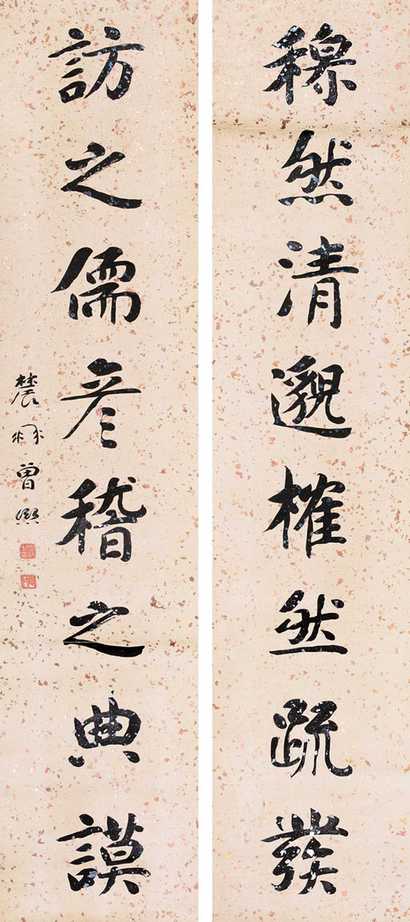 穆然清邈榷然疏發
訪之儒彥稽之典謨
農髯曾熙